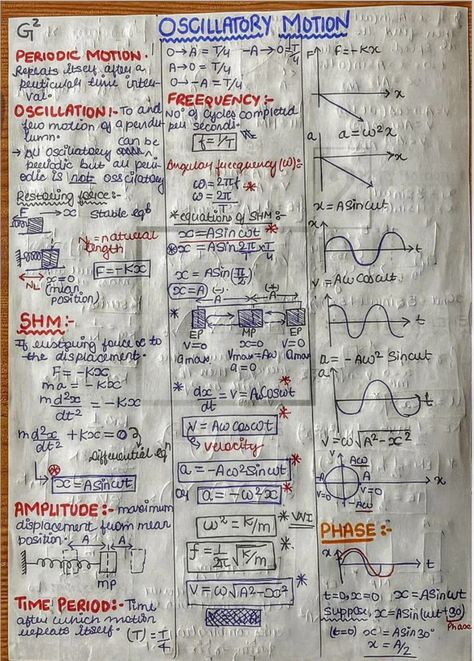 G²
OSCILLATORY MOTION
PERIODIC MOTION
Repeats itself after a
particular time inter-
val.
OSCILLATION:- To and
fro motion of a pendu
lum.
→ All oscillatory can be
periodic but all peri-
odic is not oscillatory
Restoring force:-
F → x stable eqb
N₂ = natural
length
NL x=0
(mean
position)
F=-Kx
SHM:-
If restoring force ∝ to
the displacement.
F = -Kx
ma = -Kx
md²x/dt² = -Kx
md²x/dt² + Kx = 0
differential eqn
x=ASinωt
AMPLITUDE:- maximum
displacement from mean
position.
A A
mp
TIME PERIOD:- Time
after which motion
repeats itself. (T) = T/4
O→A = T/4 -A→O = T/4
A→O = T/4
O→-A = T/4
FREEQUENCY:-
No of cycles completed
per second:-
f = 1/T
Angular frequency (ω):-
ω = 2πf
ω = 2π/T
*equations of SHM:-
x=ASinωt
x=ASin 2π/T × T/4
x = ASin(π/2)
x=A
(-) (+)
A A
EP MP EP
v=0 x=0 v=0
amax Vmax=Aω amax
a=0
dx/dt = v = Aωcosωt
v = Aωcosωt
velocity
a=-Aω²Sinωt
Or a = -ω²x
ω² = K/m VVI
f = 1/2π √K/m
V = ω√A²-x²
F f=-Kx
x
a a=ω²x
x
x=ASinωt
t
v=Aωcosωt
t
a = -Aω² Sinωt
t
v=ω√A²-x²
Aω
v=0 v=0
x
Aω
PHASE:-
x
t
t=0, x=0 x=ASinωt
Suppose, x=ASin(ωt+30)
Phase
(t=0) x=ASin30°
x = A/2